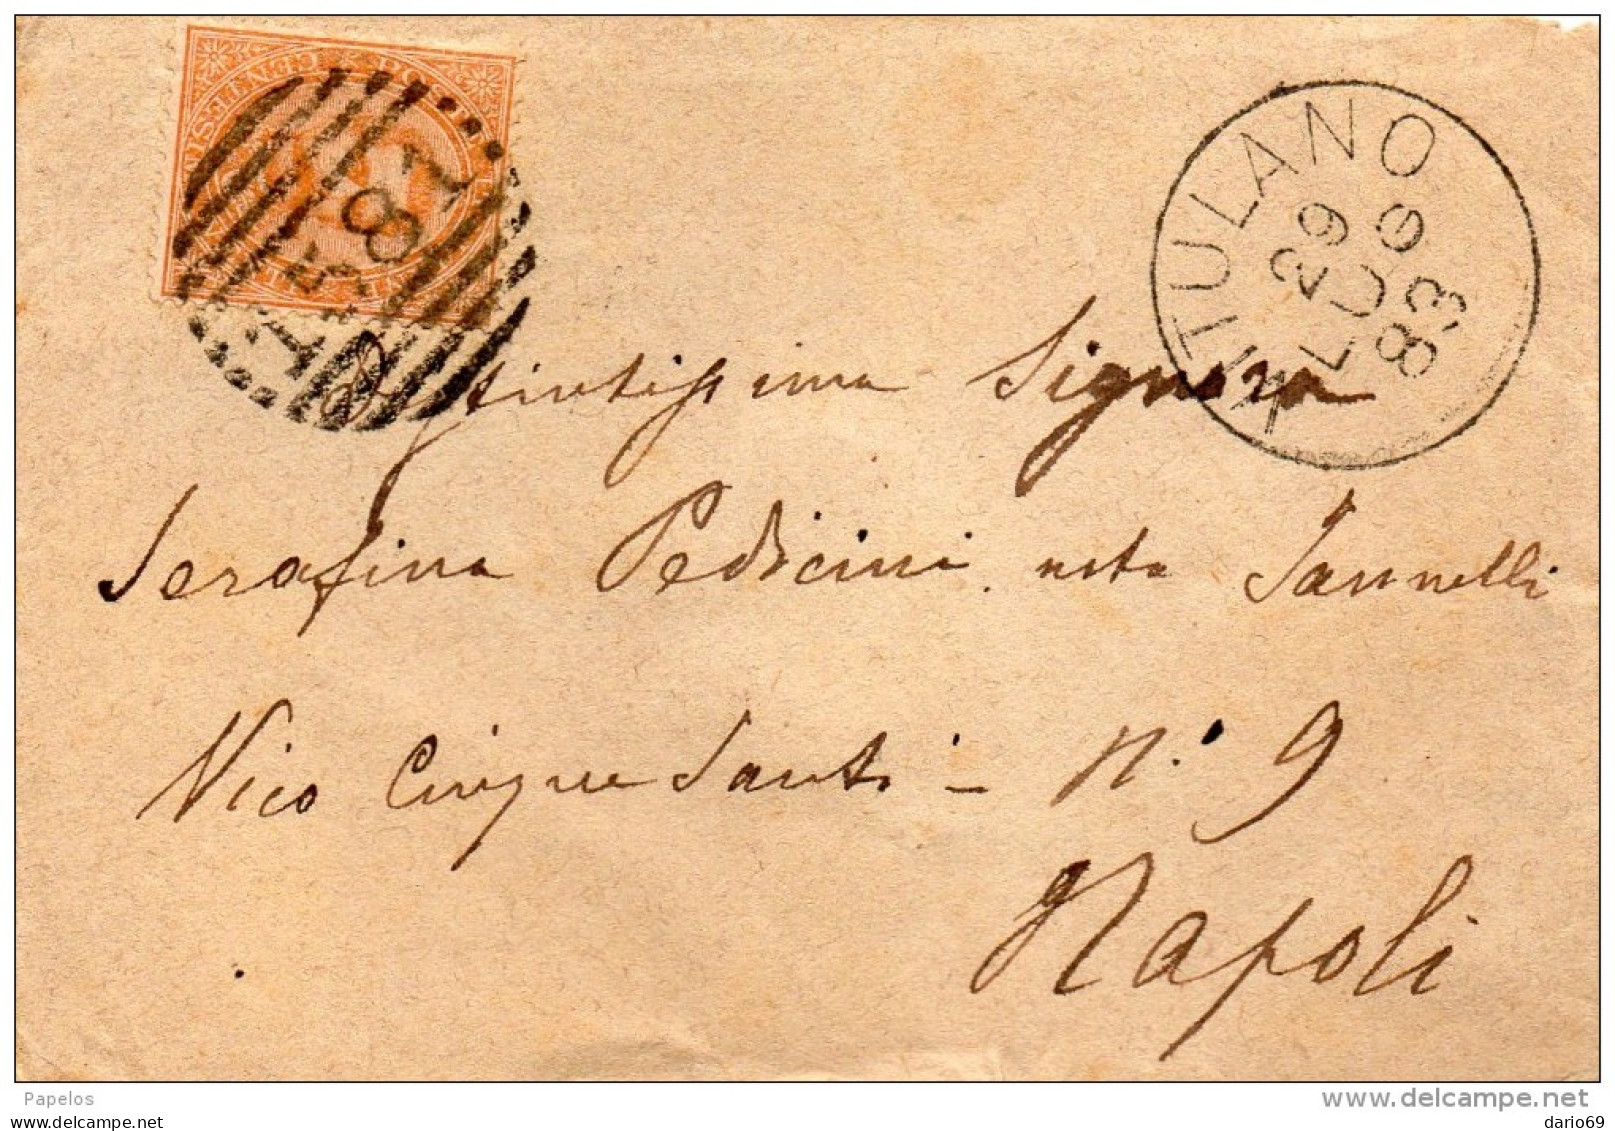 VITULANO
29
LUG
83
Distintissima Signora
Serafina Pedicini nata Iannelli
Vico Cinque Santi - N.º 9
Napoli
Papelos
www.delcampe.net
dario69